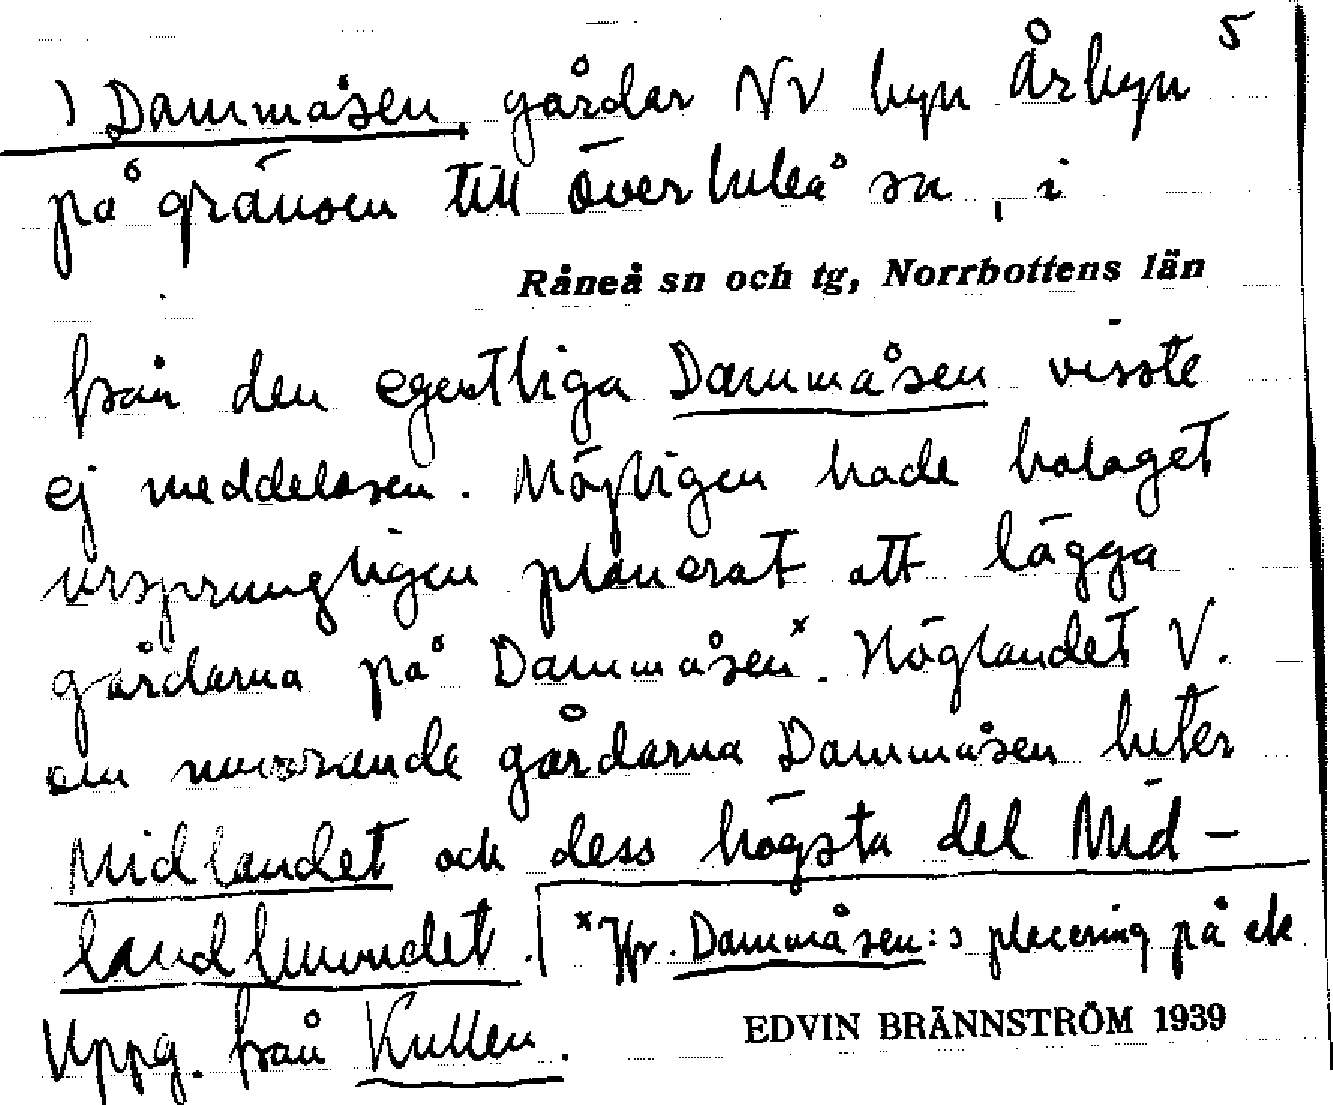 5
) Dammåsen, gårdar NV byn Årbyn
på gränsen till Överluleå sn, i
Råneå sn och tg, Norrbottens län
från den egentliga Dammåsen visste
ej meddelaren. Möjligen hade bolaget
ursprungligen planerat att lägga
gårdarna på Dammåsen.ˣ Höglandet V.
om nuvarande gårdarna Dammåsen heter
Midlandet och dess högsta del Mid-
landhuvudet.
ˣ Jfr. Dammåsen:s placering på ek
Uppg. från Kullen.
EDVIN BRÄNNSTRÖM 1939